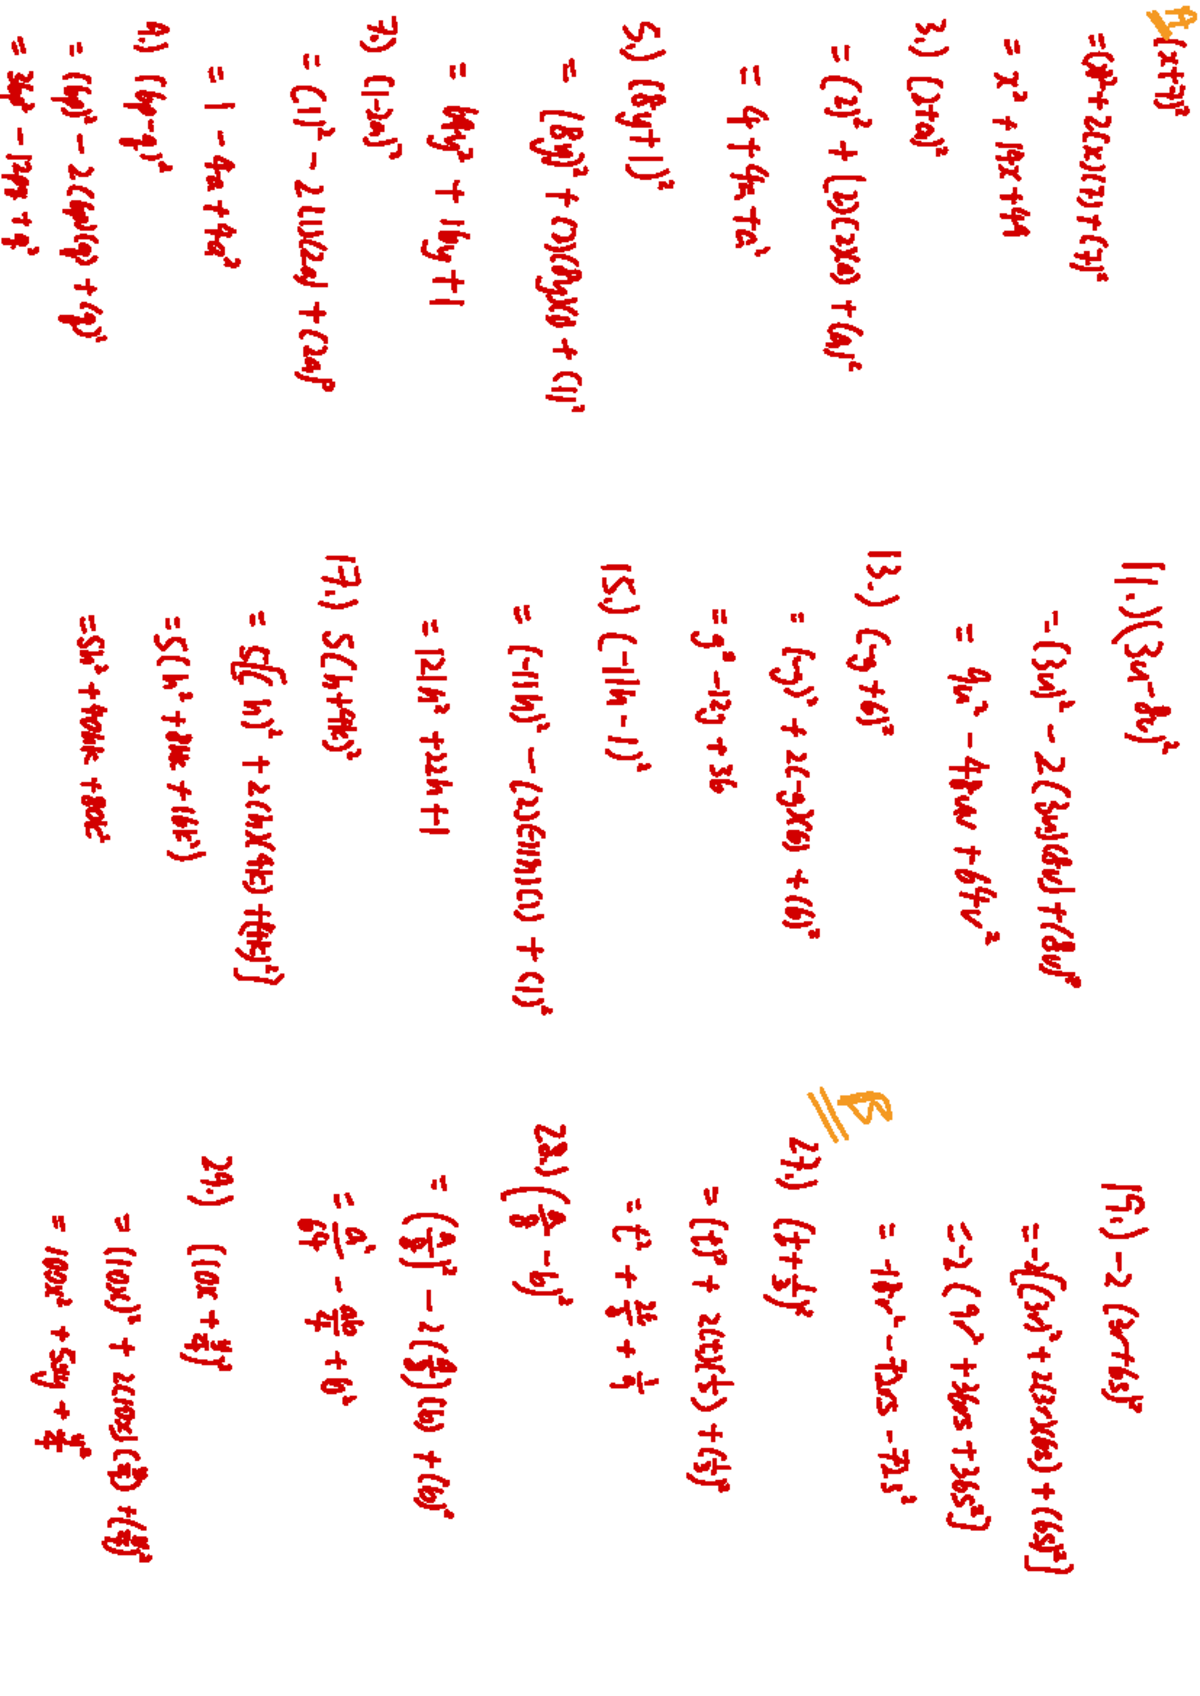 A.
(x+7)²
=(x)²+2(x)(7)+(7)²
= x² + 14x + 49
3.) (2+a)²
= (2)² + (2)(2)(a) + (a)²
= 4 + 4a + a²
5.) (8y+1)²
= (8y)² + (2)(8y)(1) + (1)²
= 64y² + 16y + 1
7.) (1-2a)²
= (1)² - 2(1)(2a) + (2a)²
= 1 - 4a + 4a²
9.) (6p-q)²
= (6p)² - 2(6p)(q) + (q)²
= 36p² - 12pq + q²
11.) (3u-8v)²
= (3u)² - 2(3u)(8v) + (8v)²
= 9u² - 48uv + 64v²
13.) (-y+6)²
= (-y)² + 2(-y)(6) + (6)²
= y² - 12y + 36
15.) (-11h - 1)²
= (-11h)² - (2)(-11h)(1) + (1)²
= 121h² + 22h + 1
17.) 5(h+4k)²
= 5[(h)² + 2(h)(4k) + (4k)²]
= 5(h² + 8hk + 16k²)
= 5h² + 40hk + 80k²
19.) -2(3r+6s)²
= -2[(3r)² + 2(3r)(6s) + (6s)²]
= -2(9r² + 36rs + 36s²]
= -18r² - 72rs - 72s²
B
27.) (t + 1/3)²
= (t)² + 2(t)(1/3) + (1/3)²
= t² + 2t/3 + 1/9
28.) (a/8 - b)²
= (a/8)² - 2(a/8)(b) + (b)²
= a²/64 - ab/4 + b²
29.) (10x + y/4)²
= (10x)² + 2(10x)(y/4) + (y/4)²
= 100x² + 5xy + y²/4